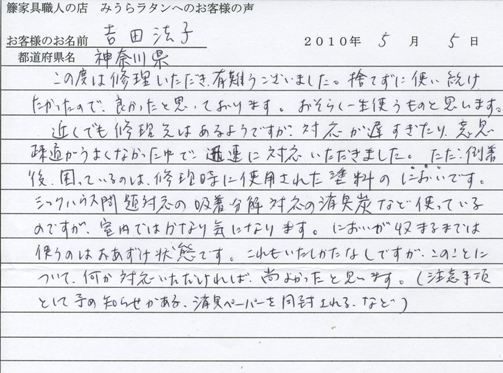 籐家具職人の店 みうらラタンへのお客様の声
お客様のお名前 吉田 法子 2010年 5月 5日
都道府県名 神奈川県
この度は修理いただき、有難うございました。捨てずに使い続け
たかったので、良かったと思っております。おそらく一生使うものと思います。
近くでも修理先はあるようですが、対応が遅すぎたり、意思
疎通がうまくなかった中で 迅速に対応いただきました。ただ、到着
後、困っているのは、修理時に使用された塗料のにおいです。
シックハウス問題対応の吸着分解対応の消臭炭など使っている
のですが、室内ではかなり気になります。においが収まるまでは
使うのはおあずけ状態です。これもいたしかたなしですが、このことに
ついて、何か対応いただければ、尚よかったと思います。(注意事項
として予め知らせがある、消臭ペーパーを同封される、など)